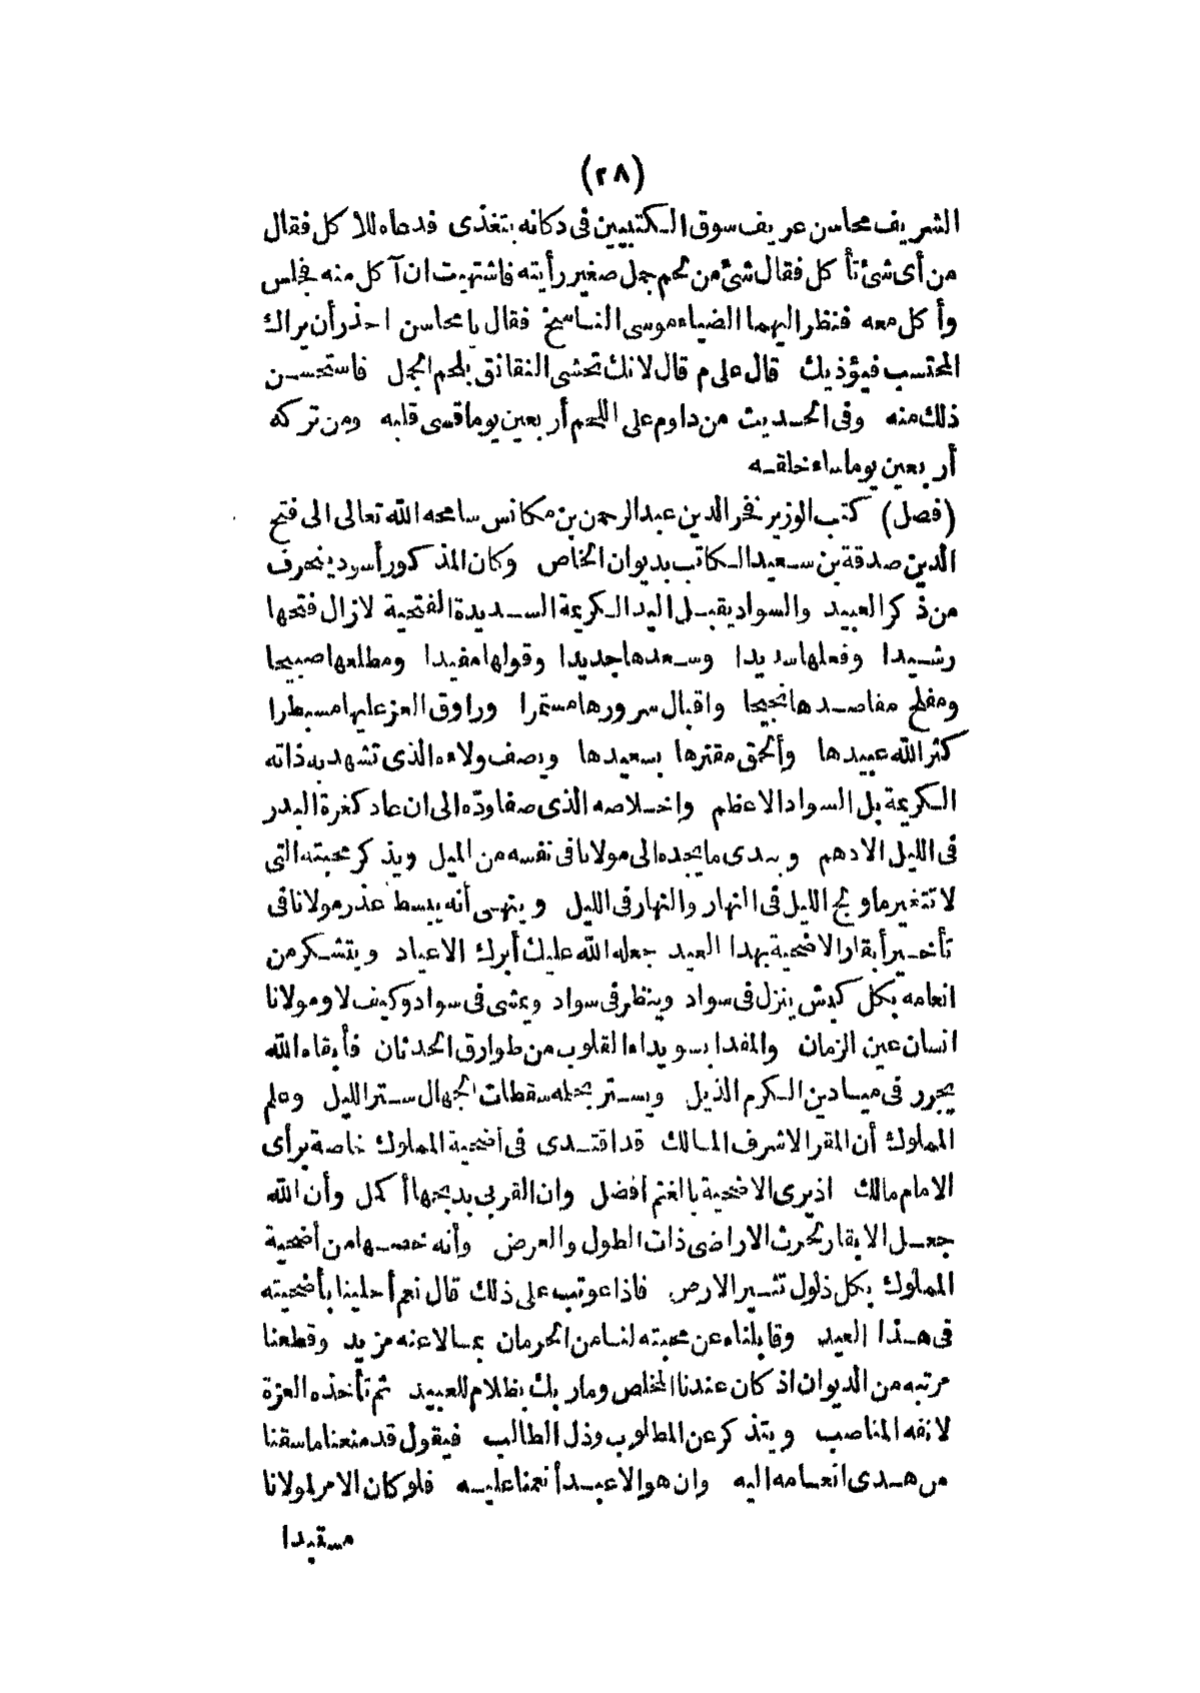 (٢٨)
الشريف محاسن عريف سوق الكتبيين فى دكانه يتغذى فدعاه للاكل فقال
من أى شئ تأكل فقال شئ من لحم جمل صغير رأيته فاشتهيت ان آكل منه فجلس
وأكل معه فنظر اليهما الضياء موسى الناسخ فقال يا محاسن احذر أن يراك
المحتسب فيؤذيك قال على م قال لانك تحشى النقانق بلحم الجمل فاستحسن
ذلك منه وفى الحديث من داوم على اللحم أربعين يوما قسى قلبه ومن تركه
أربعين يوما ساء خلقه
(فصل) كتب الوزير فخر الدين عبد الرحمن بن مكانس سامحه الله تعالى الى فتح
الدين صدقة بن سعيد الكاتب بديوان الخاص وكان المذكور أسود ينحرف
من ذكر العبيد والسواد يقبل اليد الكريمة السديدة الفتحية لازال فتحها
رشيدا وفعلها سديدا وسعدها جديدا وقولها مفيدا ومطلعها صبيحا
ومفلح مقاصدها نجيحا واقبال سرورها مستمرا وراوق العز عليها مسبطرا
كثر الله عبيدها وألحق مقترها بسعيدها ويصف ولاءه الذى تشهد به ذاته
الكريمة بل السواد الاعظم واخلاصه الذى صفا ودّه الى ان عاد كغرة البدر
فى الليل الادهم ويبدى ما يجده الى مولانا فى نفسه من الميل ويذكر محبته التى
لا تتغير ما ولج الليل فى النهار والنهار فى الليل وينهى أنه يبسط عذر مولانا فى
تأخير أبقار الاضحية بهذا العيد جعله الله عليك أبرك الاعياد ويتشكر من
انعامه بكل كبش ينزل فى سواد وينظر فى سواد ويمشى فى سواد وكيف لا ومولانا
انسان عين الزمان والمفدا بسويداء القلوب من طوارق الحدثان فأبقاه الله
يجرر فى ميادين الكرم الذيل ويستر بحلمه سقطات الجهال ستر الليل وعلم
المملوك أن المقر الاشرف المالك قد اقتدى فى أضحية المملوك خاصة برأى
الامام مالك اذ يرى الاضحية بالغنم أفضل وان القربى بذبحها أكمل وأن الله
جعل الابقار لحرث الاراضى ذات الطول والعرض وأنه خصها من أضحية
المملوك بكل ذلول تثير الارض فاذا عوتب على ذلك قال نعم أحلينا بأضحيته
فى هذا العيد وقابلناه عن محبته لنا من الحرمان بما لا عنه مزيد وقطعنا
مرتبه من الديوان اذ كان عندنا المخلص وما ربك بظلام للعبيد ثم تأخذه العزة
لانفه المناصب ويتذكر عن المطلوب وذل الطالب فيقول قد منعنا ما سقنا
من هدى انعامه اليه وان هو الا عبد أنعمنا عليه فلو كان الامر لمولانا
مستبدا